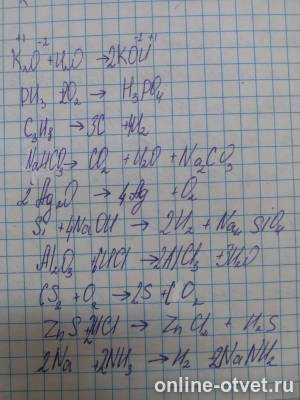 +1 -2 -2 +1
K₂O + H₂O → 2KOH
PH₃ + 2O₂ → H₃PO₄
C₃H₈ → 3C + 4H₂
NaHCO₃ → CO₂ + H₂O + Na₂CO₃
2Ag₂O → 4Ag + O₂
Si + 4NaOH → 2H₂ + Na₄SiO₄
Al₂O₃ + 6HCl → 2AlCl₃ + 3H₂O
CS₂ + O₂ → 2S + CO₂
ZnS + 2HCl → ZnCl₂ + H₂S
2Na + 2NH₃ → H₂ + 2NaNH₂
online-otvet.ru